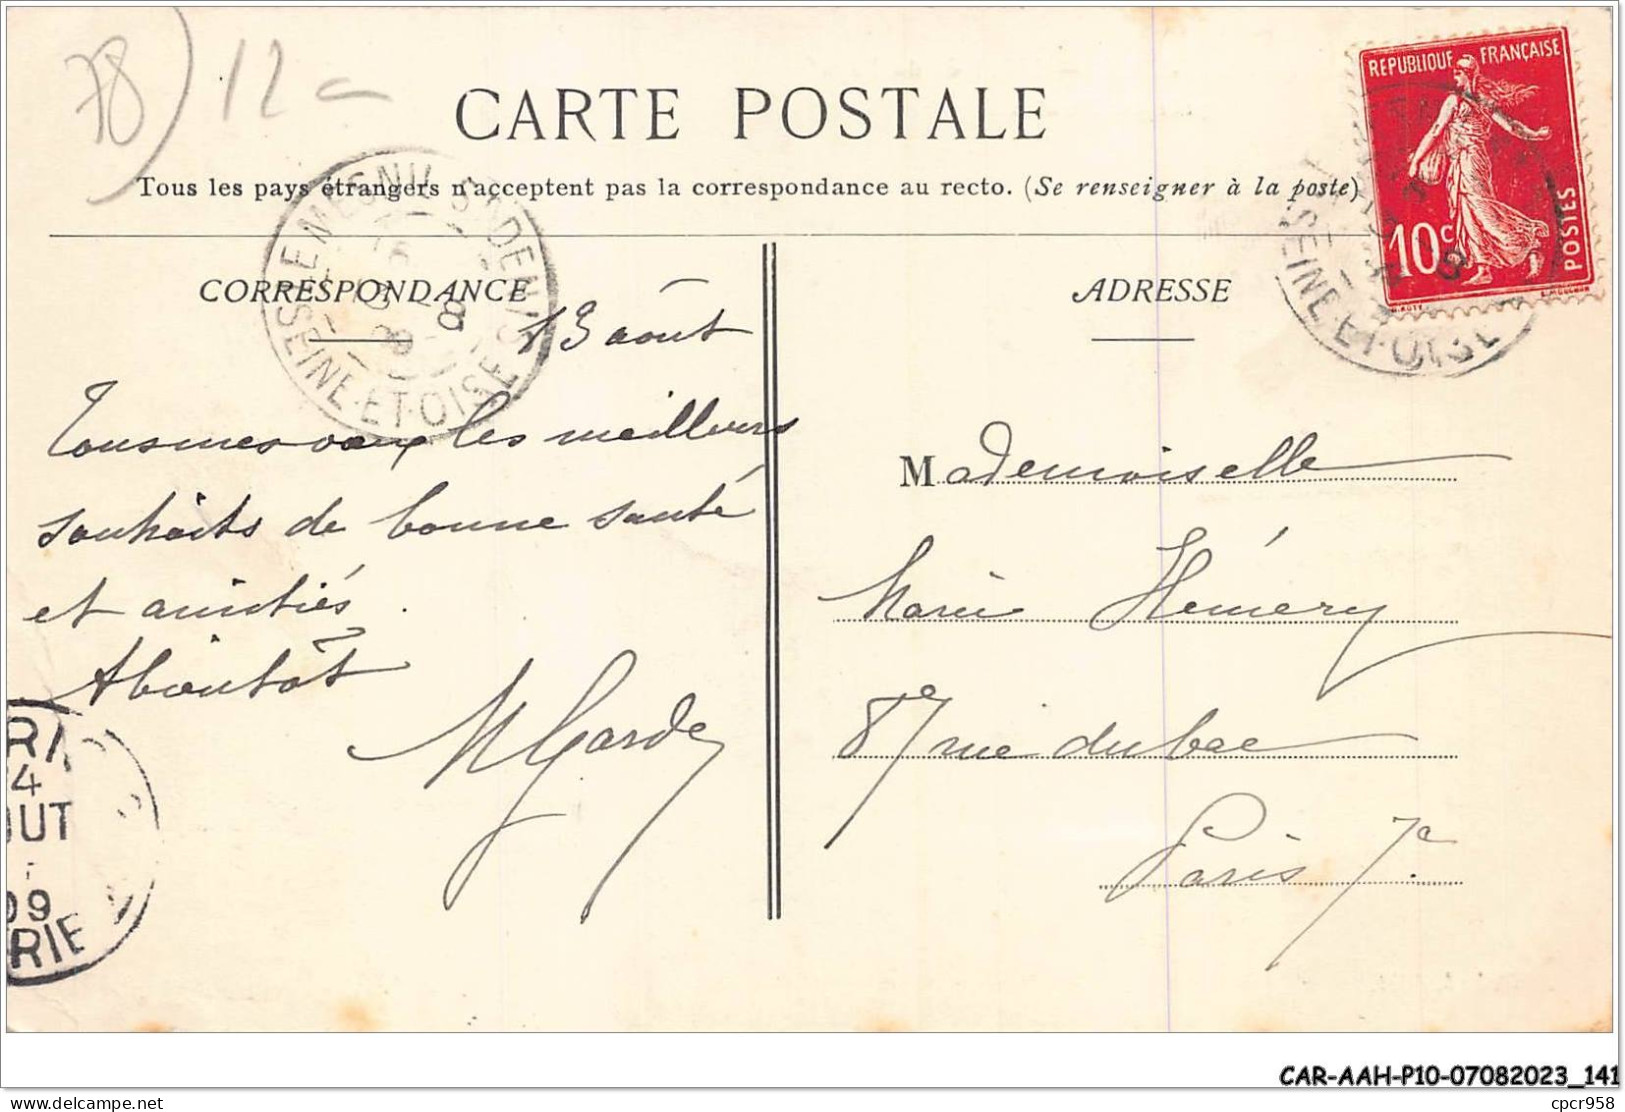 78) 12 -
CARTE POSTALE
Tous les pays étrangers n'acceptent pas la correspondance au recto. (Se renseigner à la poste)
REPUBLIQUE FRANÇAISE
10c
POSTES
LE MESNIL ST DENIS
SEINE-ET-OISE
CORRESPONDANCE
13 août
Tous mes vœux les meilleurs
souhaits de bonne santé
et amitiés.
A bientôt
M Garde
ADRESSE
Mademoiselle
Marie Héméry
87 rue du bac
Paris 7e
SEINE-ET-OISE
RI
4
OUT
09
RIE
CAR-AAH-P10-07082023_141
delcampe.net
cpcr958